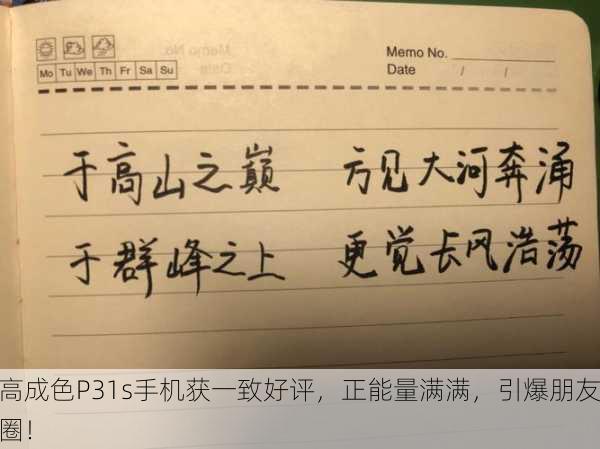 Memo No.
Mo Tu We Th Fr Sa Su
Date / /
于高山之巅 方见大河奔涌
于群峰之上 更觉长风浩荡
高成色P31s手机获一致好评，正能量满满，引爆朋友
圈！